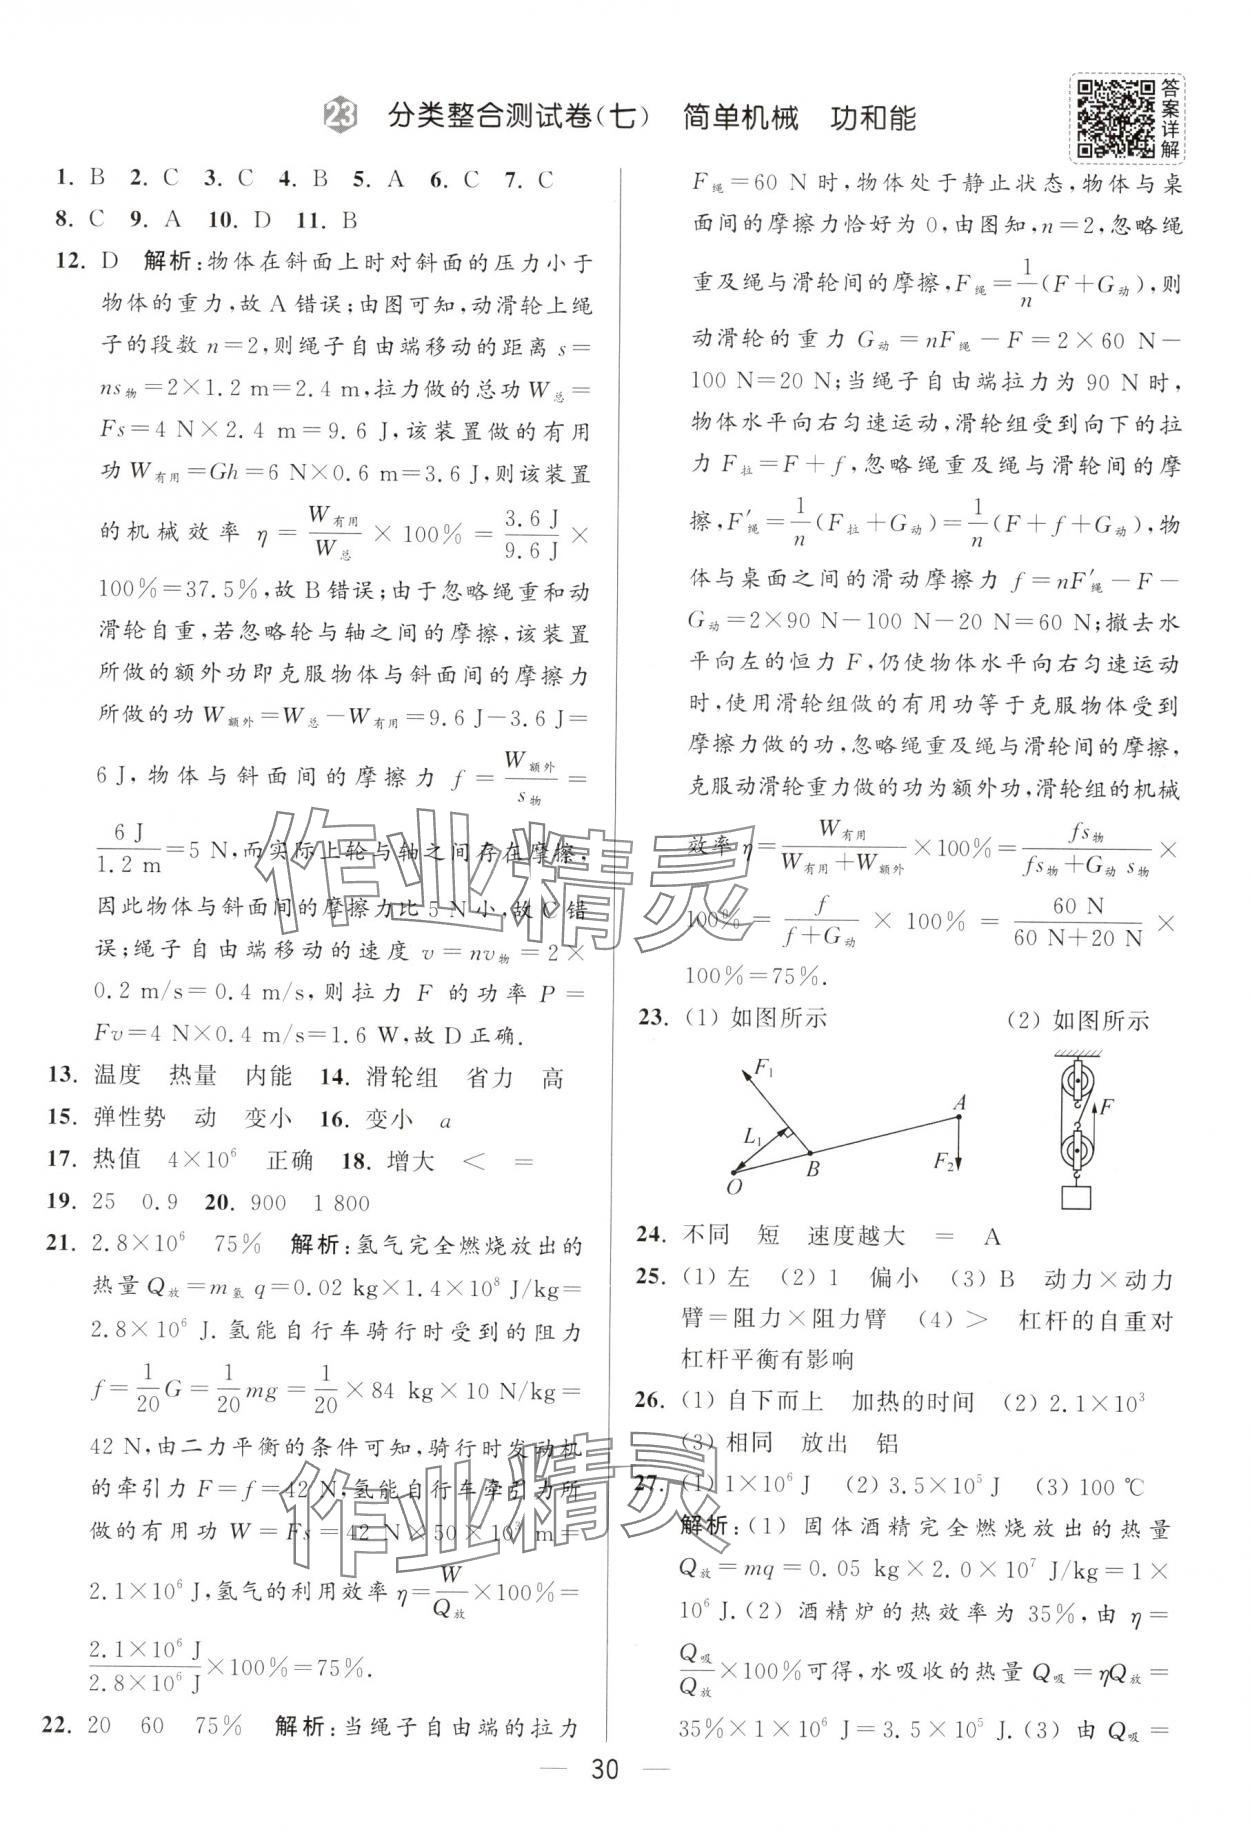 23 分类整合测试卷(七) 简单机械 功和能
答案详解
1. B 2. C 3. C 4. B 5. A 6. C 7. C
8. C 9. A 10. D 11. B
12. D 解析:物体在斜面上时对斜面的压力小于
物体的重力,故A错误;由图可知,动滑轮上绳
子的段数 n=2,则绳子自由端移动的距离 s=
ns物=2×1.2 m=2.4 m,拉力做的总功W总=
Fs=4 N×2.4 m=9.6 J,该装置做的有用
功W有用=Gh=6 N×0.6 m=3.6 J,则该装置
的机械效率 η=W有用/W总×100%=3.6 J/9.6 J×
100%=37.5%,故B错误;由于忽略绳重和动
滑轮自重,若忽略轮与轴之间的摩擦,该装置
所做的额外功即克服物体与斜面间的摩擦力
所做的功W额外=W总-W有用=9.6 J-3.6 J=
6 J,物体与斜面间的摩擦力 f=W额外/s物=
6 J/1.2 m=5 N,而实际上轮与轴之间存在摩擦,
因此物体与斜面间的摩擦力比5 N小,故C错
误;绳子自由端移动的速度 v=nv物=2×
0.2 m/s=0.4 m/s,则拉力 F 的功率 P=
Fv=4 N×0.4 m/s=1.6 W,故D正确.
13. 温度 热量 内能 14. 滑轮组 省力 高
15. 弹性势 动 变小 16. 变小 a
17. 热值 4×10⁶ 正确 18. 增大 < =
19. 25 0.9 20. 900 1 800
21. 2.8×10⁶ 75% 解析:氢气完全燃烧放出的
热量Q放=m氢q=0.02 kg×1.4×10⁸ J/kg=
2.8×10⁶ J.氢能自行车骑行时受到的阻力
f=1/20G=1/20mg=1/20×84 kg×10 N/kg=
42 N,由二力平衡的条件可知,骑行时发动机
的牵引力F=f=42 N,氢能自行车牵引力所
做的有用功 W=Fs=42 N×50×10³ m=
2.1×10⁶ J,氢气的利用效率η=W/Q放×100%=
2.1×10⁶ J/2.8×10⁶ J×100%=75%.
22. 20 60 75% 解析:当绳子自由端的拉力
F绳=60 N时,物体处于静止状态,物体与桌
面间的摩擦力恰好为0,由图知,n=2,忽略绳
重及绳与滑轮间的摩擦,F绳=1/n(F+G动),则
动滑轮的重力 G动=nF绳-F=2×60 N-
100 N=20 N;当绳子自由端拉力为90 N时,
物体水平向右匀速运动,滑轮组受到向下的拉
力F拉=F+f,忽略绳重及绳与滑轮间的摩
擦,F′绳=1/n(F拉+G动)=1/n(F+f+G动),物
体与桌面之间的滑动摩擦力 f=nF′绳-F-
G动=2×90 N-100 N-20 N=60 N;撤去水
平向左的恒力F,仍使物体水平向右匀速运动
时,使用滑轮组做的有用功等于克服物体受到
摩擦力做的功,忽略绳重及绳与滑轮间的摩擦,
克服动滑轮重力做的功为额外功,滑轮组的机械
效率η=W有用/(W有用+W额外)×100%=fs物/(fs物+G动s物)×
100%=f/(f+G动)×100%=60 N/(60 N+20 N)×
100%=75%.
23. (1) 如图所示 (2) 如图所示
F₁ A L₁ B F₂ O F
24. 不同 短 速度越大 = A
25. (1) 左 (2) 1 偏小 (3) B 动力×动力
臂=阻力×阻力臂 (4) > 杠杆的自重对
杠杆平衡有影响
26. (1) 自下而上 加热的时间 (2) 2.1×10³
(3) 相同 放出 铝
27. (1) 1×10⁶ J (2) 3.5×10⁵ J (3) 100 ℃
解析:(1) 固体酒精完全燃烧放出的热量
Q放=mq=0.05 kg×2.0×10⁷ J/kg=1×
10⁶ J.(2) 酒精炉的热效率为35%,由 η=
Q吸/Q放×100%可得,水吸收的热量Q吸=ηQ放=
35%×1×10⁶ J=3.5×10⁵ J.(3) 由 Q吸=
30
作业精灵
作业精灵